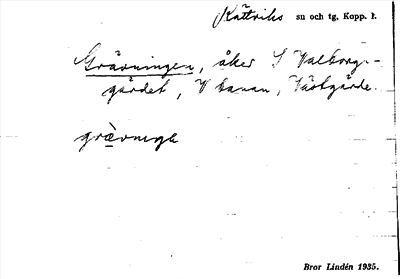 Rättviks sn och tg, Kopp. l.
Grävningen, åker S Valborgs-
gärdet, V banan, Västgärde.
grävniga
Bror Lindén 1935.